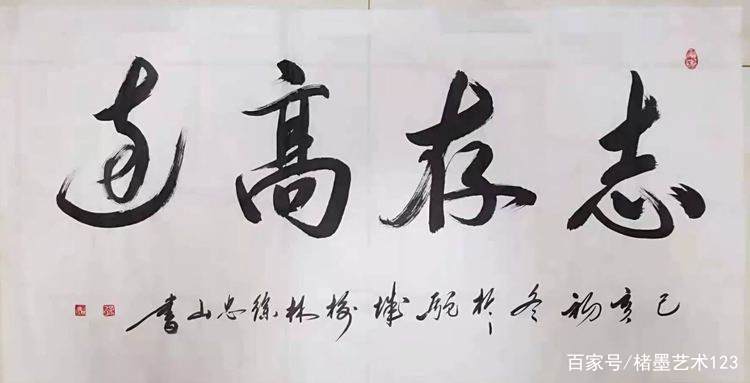 志存高遠
己亥初冬於驼城榆林徐忠山書
百家号/楮墨艺术123